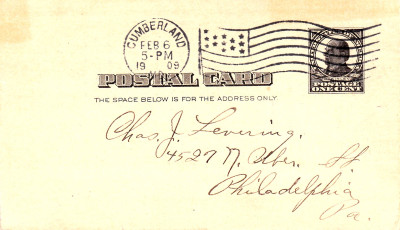 CUMBERLAND
FEB 6
5-PM
19 09
POSTAL CARD
THE SPACE BELOW IS FOR THE ADDRESS ONLY.
POSTAGE
ONE CENT
Chas. J. Levering.
4527 N. Uber. St
Philadelphia
Pa.